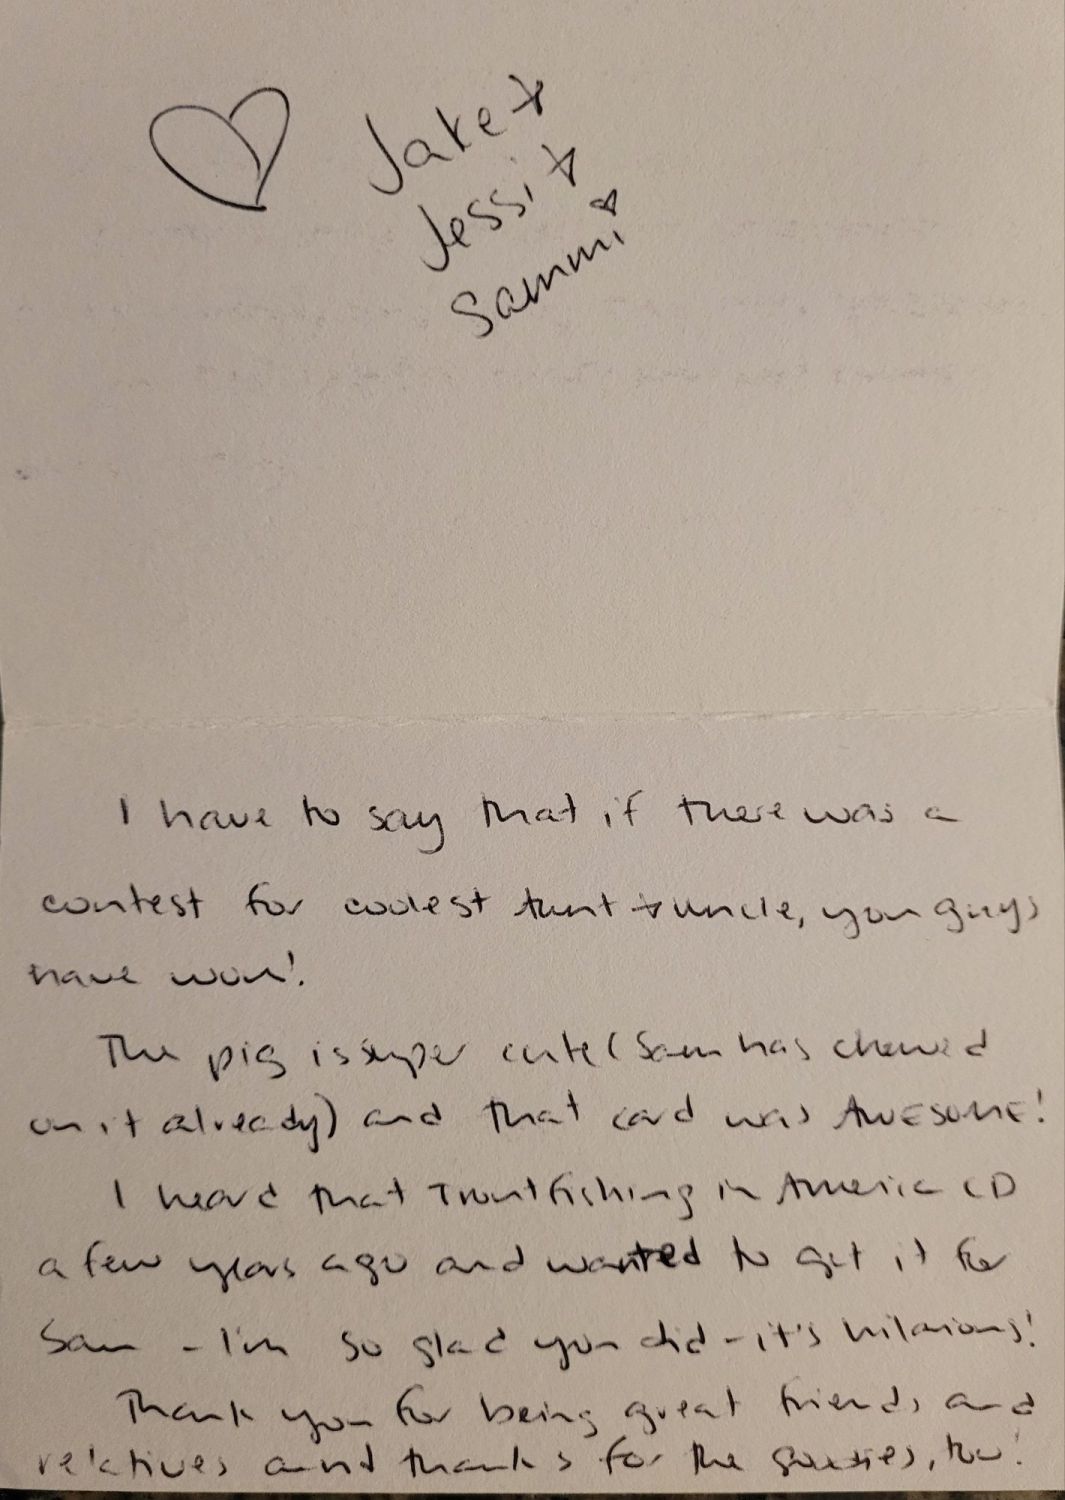 Jake +
Jessi +
Sammi
I have to say that if there was a
contest for coolest Aunt + uncle, you guys
have won!
The pig is super cute (Sam has chewed
on it already) and that card was AWESOME!
I heard that Trout Fishing in America CD
a few years ago and wanted to get it for
Sam - I'm so glad you did - it's hilarious!
Thank you for being great friends and
relatives and thanks for the goodies, too!